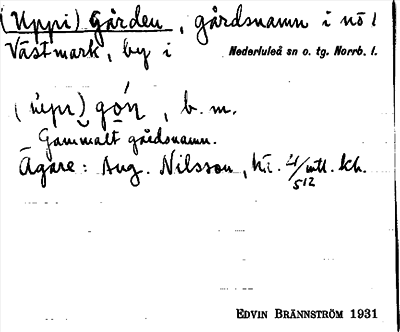 (Uppi) Gården, gårdsnamn i nö 1
Västmark, by i Nederluleå sn o. tg. Norrb. l.
gǫ́n, b. m.
Gammalt gårdsnamn.
Ägare: Aug. Nilsson, hä. 21/512 mtl. kh.
EDVIN BRÄNNSTRÖM 1931